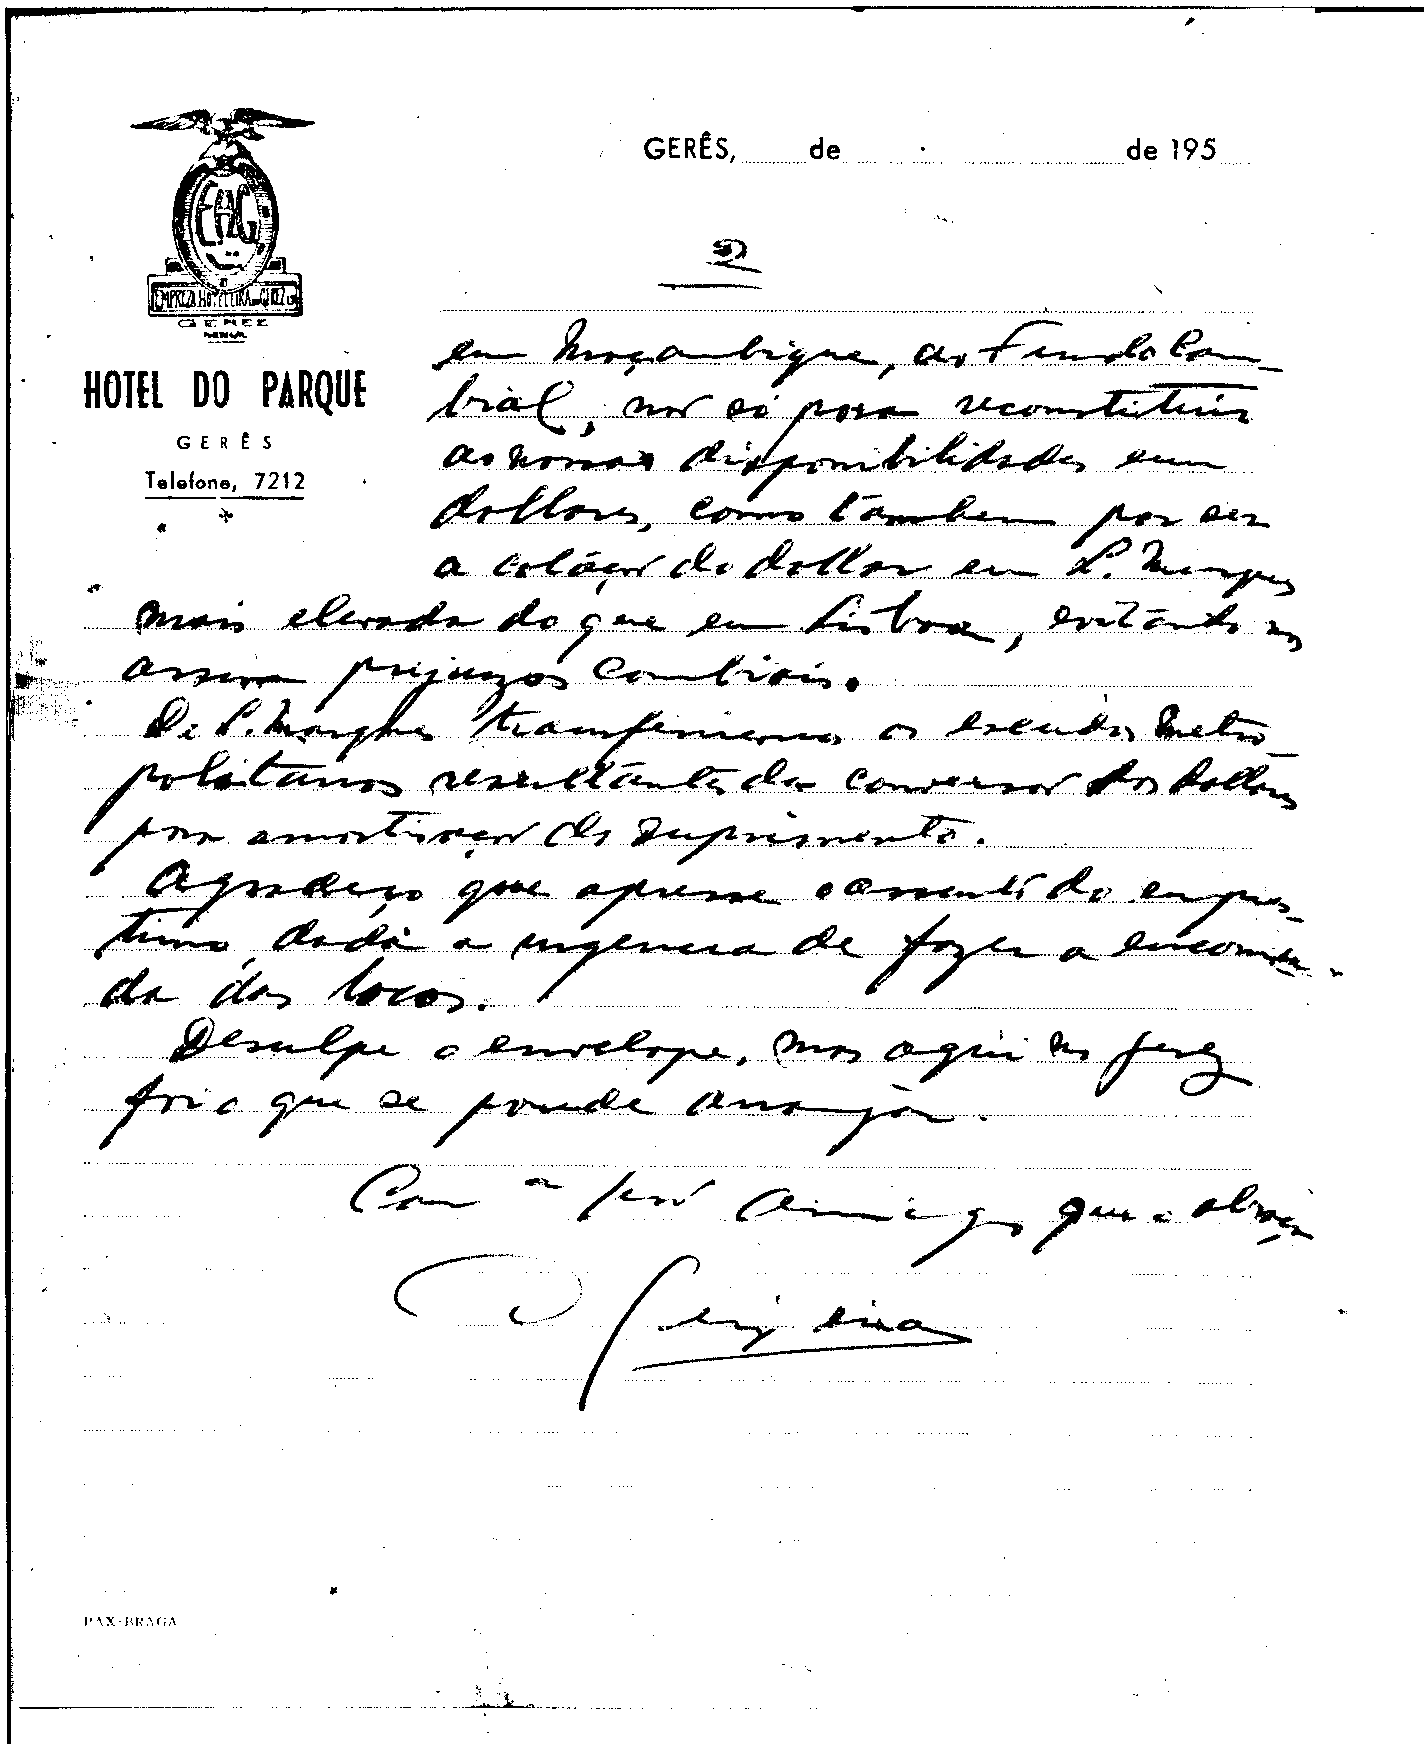 GERÊS, de de 195
EHG
EMPREZA HOTELEIRA DO GEREZ
GEREZ
HOTEL DO PARQUE
GERÊS
Telefone, 7212
2
em Moçambique, ao Fundo Cam-
bial, não só para reconstituir
as nossas disponibilidades em
dollares, como tambem por ser
a cotáção do dollar em L. Marques
mais elevada do que em Lisboa, evitando nos
assim prejuizos cambiais.
De L. Marques transferiremos os escudos Metro-
politanos resultantes da conversão dos dollares
para amortização do suprimento.
Agradeço que apresse o do empres-
timo, dada a urgencia de fazer a encomen-
da das locos.
Desculpe o envelope, mas aqui no Gerez
foi o que se poude arranjar.
Com amigo que o abraça